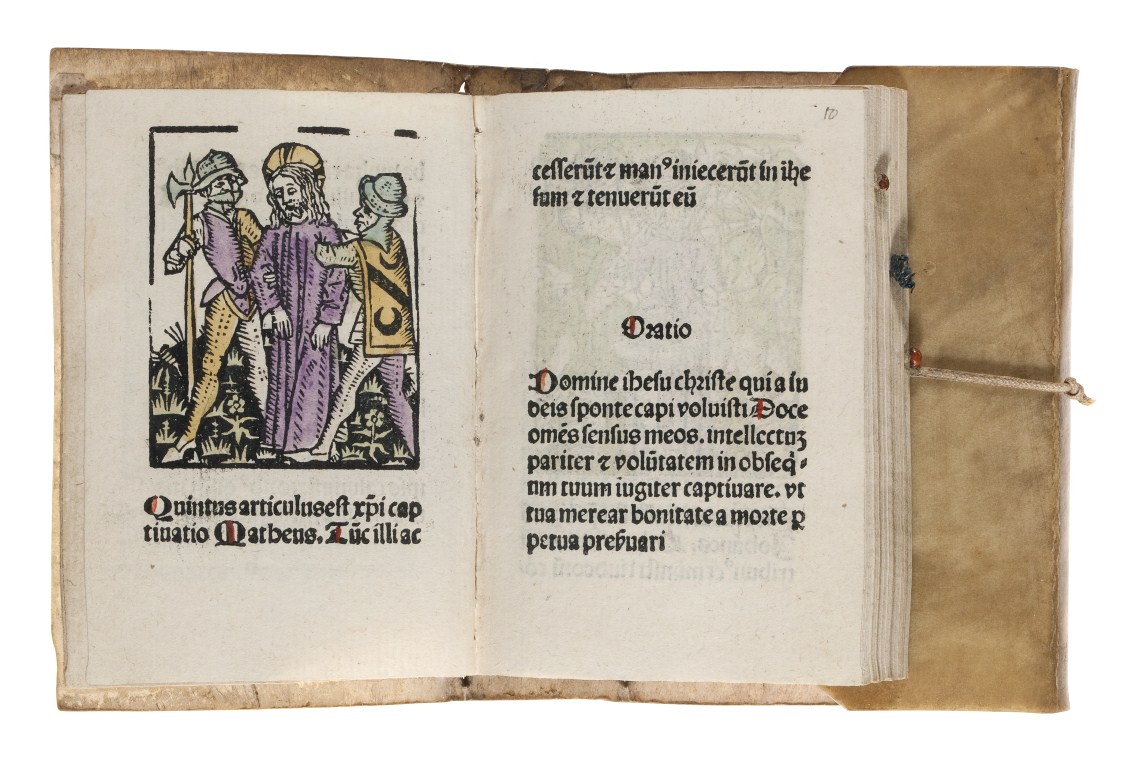 Quintus articulus est xp̄i cap
tiuatio Matheus. Tūc illi ac
10
cesserūt ⁊ manꝰ iniecerūt in ihe
sum ⁊ tenuerūt eū
Oratio
Domine ihesu christe qui a iu
deis sponte capi voluisti Doce
omēs sensus meos. intellectuꝫ
pariter ⁊ volūtatem in obseq̄᷑
um tuum iugiter captiuare. vt
tua merear bonitate a morte ꝑ
petua preẜuari